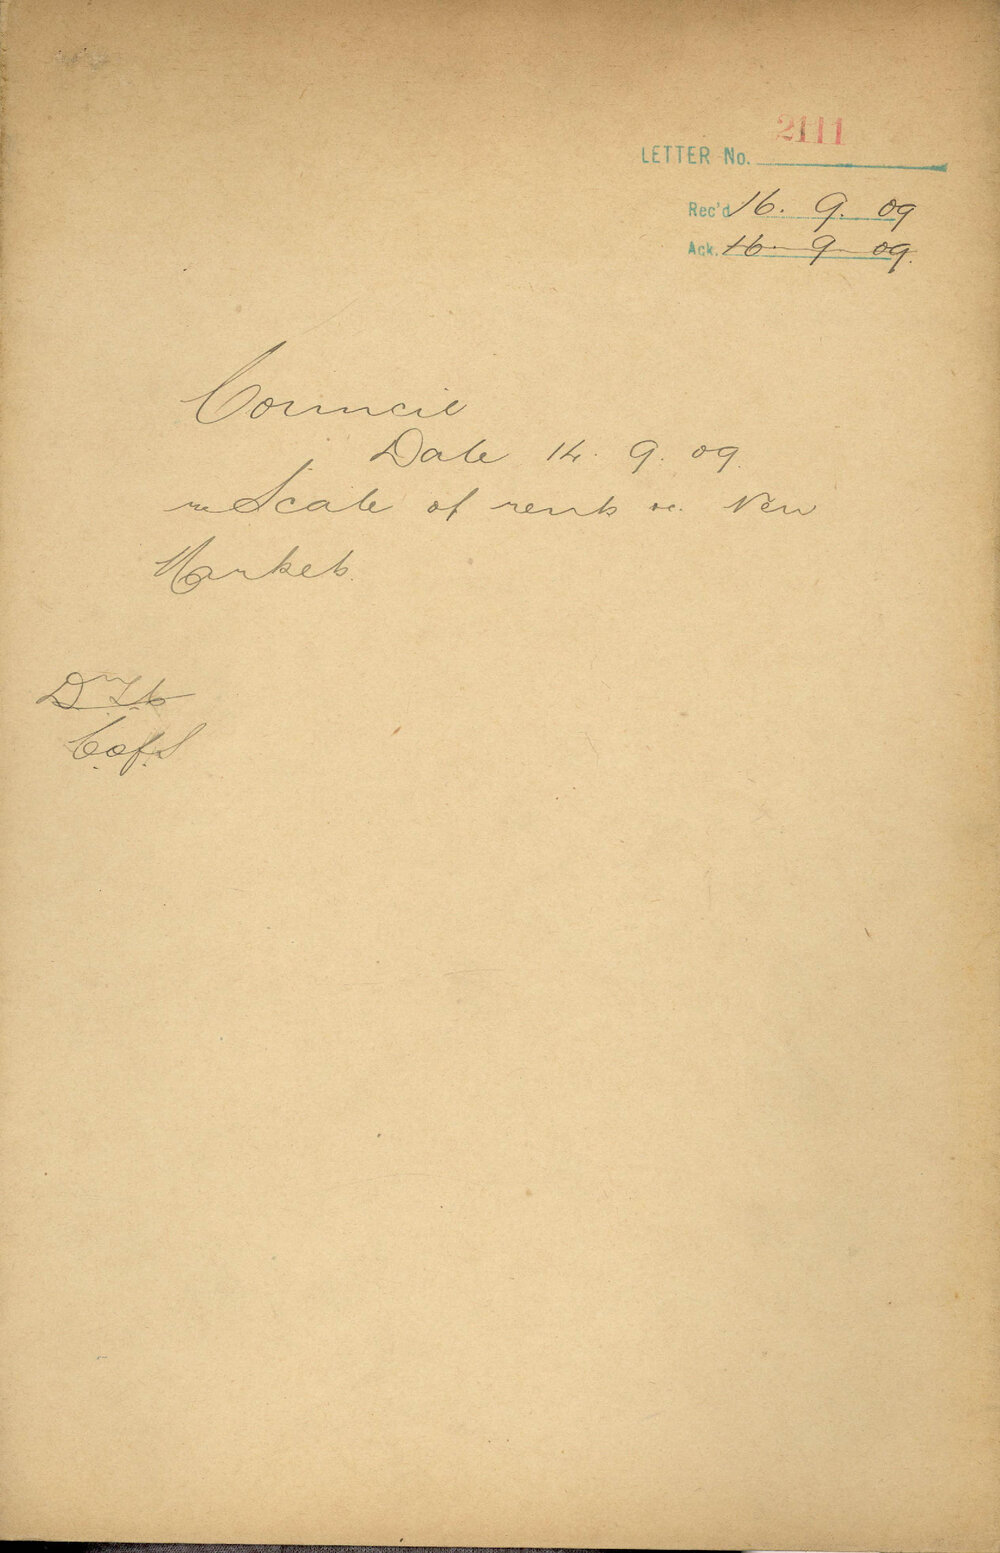 2111
LETTER No.
Rec'd 16. 9. 09
Ack. 16. 9. 09.
Council
Date 14. 9. 09.
re Scale of rents re. New
Markets.
C. of. S